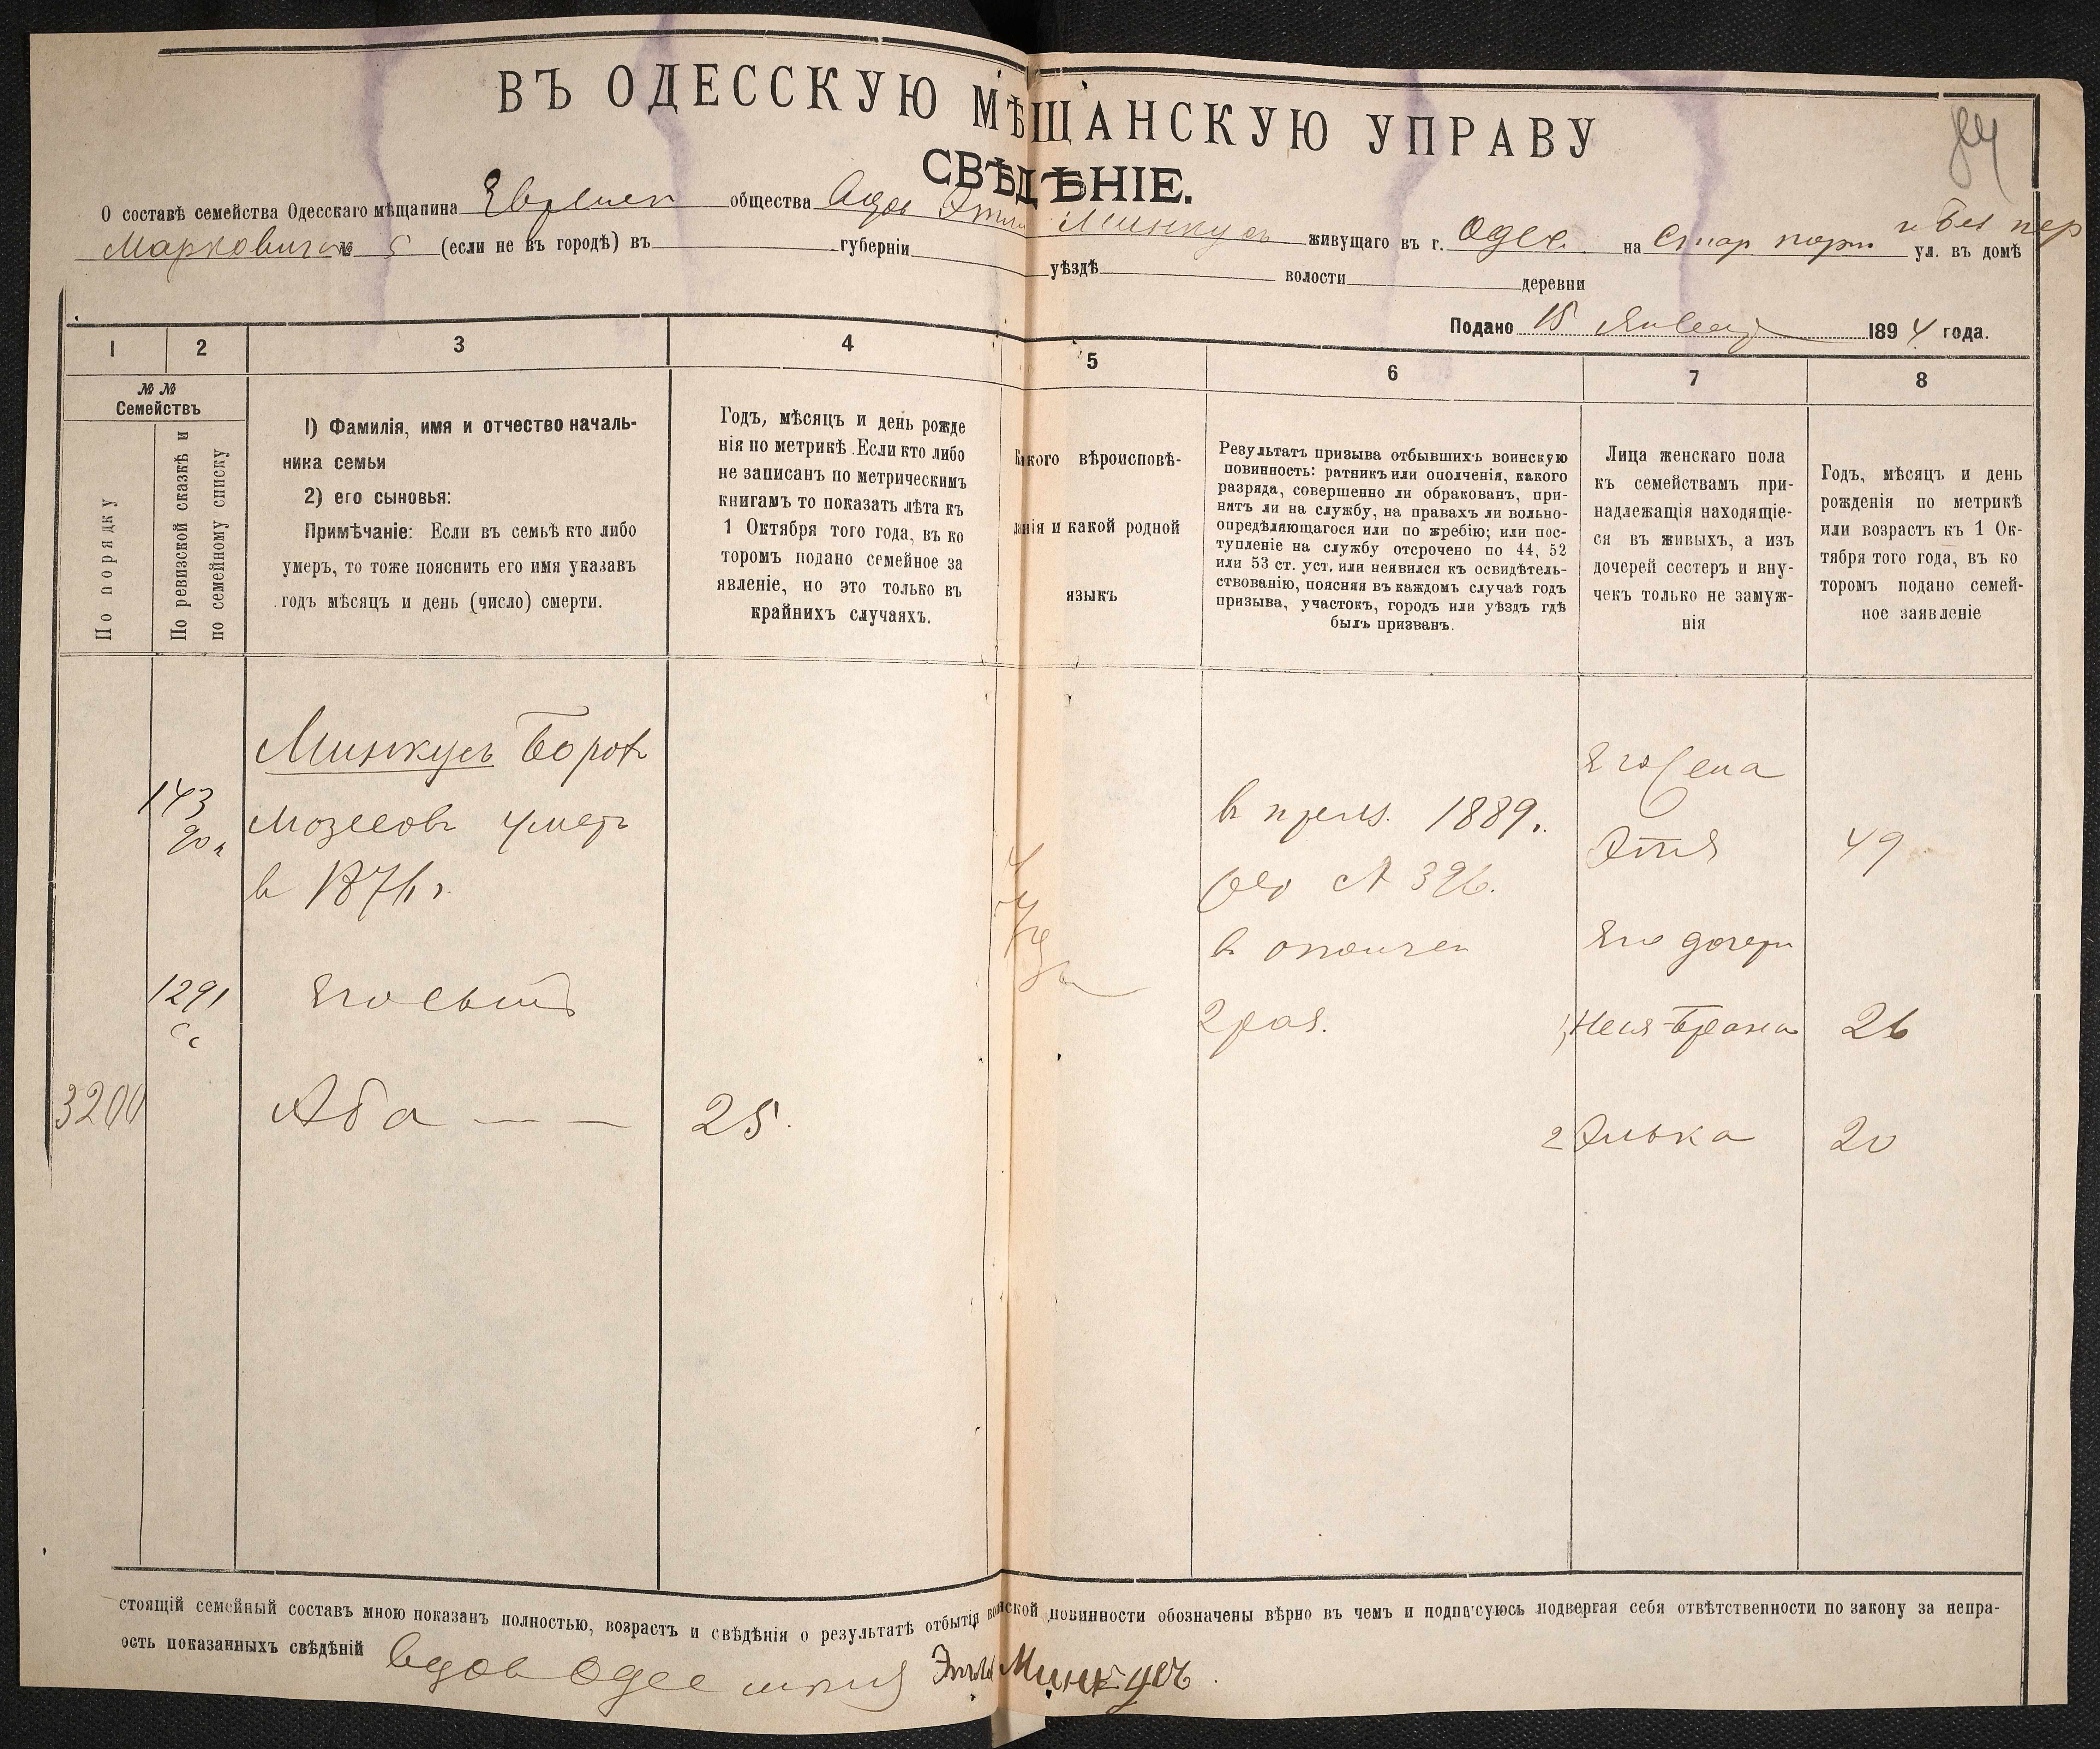 84
ВЪ ОДЕССКУЮ МѢЩАНСКУЮ УПРАВУ
СВѢДѢНІЕ.
О составѣ семейства Одесскаго мѣщанина Евреиск общества вдов Этли Минкусъ живущаго въ г. Одес. на Стар порт ул. въ домѣ
Марковича № 5 (если не въ городѣ) въ губерніи уѣздѣ волости деревни
Подано 15 Января 1894 года.
1 2 3 4 5 6 7 8
№ №
Семействъ
По порядку
По ревизской сказкѣ и
по семейному списку
1) Фамилія, имя и отчество началь-
ника семьи
2) его сыновья:
Примѣчаніе: Если въ семьѣ кто либо
умеръ, то тоже пояснить его имя указавъ
годъ мѣсяцъ и день (число) смерти.
Годъ, мѣсяцъ и день рожде
нія по метрикѣ. Если кто либо
не записанъ по метрическимъ
книгамъ то показать лѣта къ
1 Октября того года, въ ко
торомъ подано семейное за
явленіе, но это только въ
крайнихъ случаяхъ.
Какого вѣроисповѣ-
данія и какой родной
языкъ
Результатъ призыва отбывшихъ воинскую
повинность: ратникъ или ополченія, какого
разряда, совершенно ли обракованъ, при-
нятъ ли на службу, на правахъ ли вольно-
опредѣляющагося или по жребію; или пос-
тупленіе на службу отсрочено по 44, 52
или 53 ст. уст. или неявился къ освидѣтель-
ствованію, поясняя въ каждомъ случаѣ годъ
призыва, участокъ, городъ или уѣздъ гдѣ
былъ призванъ.
Лица женскаго пола
къ семействамъ при-
надлежащія находящіе-
ся въ живыхъ, а изъ
дочерей сестеръ и вну-
чекъ только не замуж-
нія
Годъ, мѣсяцъ и день
рожденія по метрикѣ
или возрастъ къ 1 Ок-
тября того года, въ ко
торомъ подано семей-
ное заявленіе
143
Минкусъ Борох
Мозесов умеръ
в 1876 г.
1291
Его сынъ
3200
Аба — —
25.
в призъ. 1889 г.
№ 326.
в ополчен
2 раз.
Его жена
Этля
49
Его дочери
1) Неся-Брана
26
2 Элька
20
стоящій семейный составъ мною показанъ полностью, возрастъ и свѣдѣнія о результатѣ отбытія воинской повинности обозначены вѣрно въ чемъ и подписуюсь подвергая себя отвѣтственности по закону за непра-
ость показанныхъ свѣдѣній вдов Одес мѣщ Этля Минкусъ